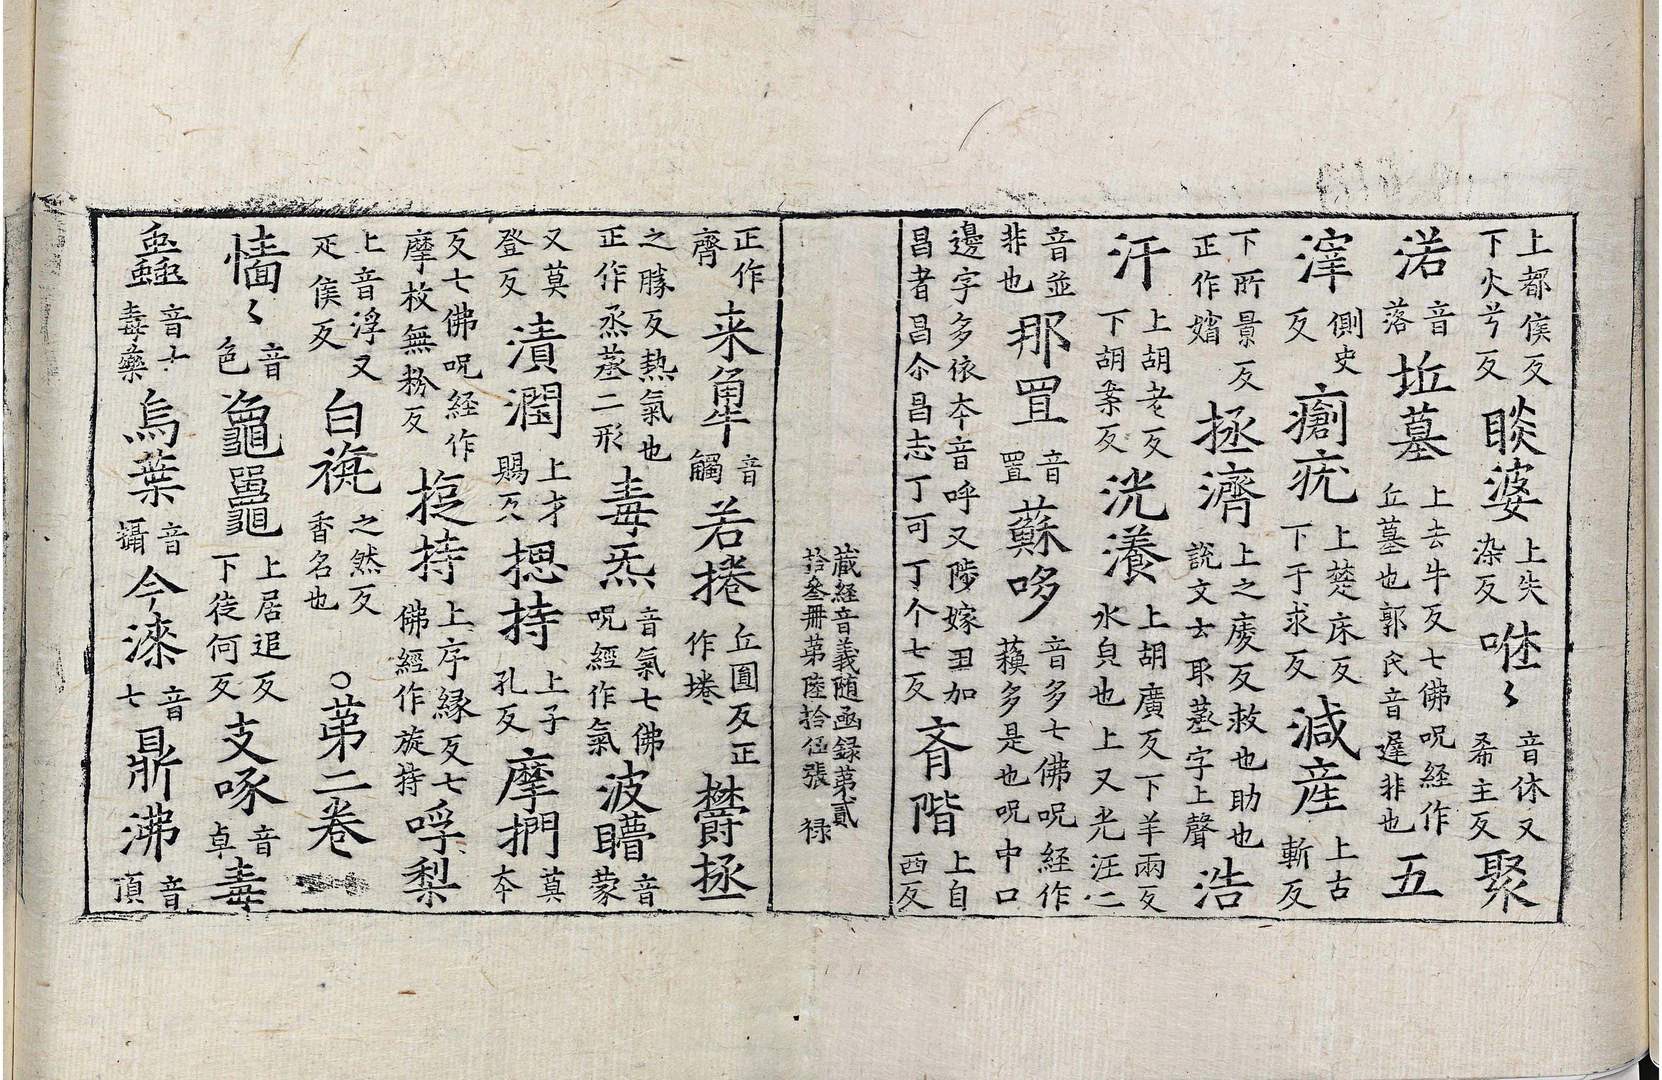 上都侯反下火兮反睒婆上失染反咻〻音休又希主反聚
渃音落坵墓上去牛反七佛呪經作丘墓也郭氏音遲非也五
滓側史反瘡疣上楚床反下于求反減産上古斬反
下所景反正作㛮拯濟上之庱反救也助也說文云取蒸字上聲浩
汗上胡老反下胡案反洸瀁上胡廣反下羊兩反水皃也上又光汪二
音並非也那罝音罝蘇哆音多七佛呪經作蘓多是也呪中口
邊字多依夲音呼又陟嫁丑加昌者昌尒昌志丁可丁个七反斉階上自西反
藏經音義随函録第貳
拾叄冊第陸拾伍張 禄
正作齊来觕音觸若捲丘圓反正作埢欝拯
之勝反熱氣也正作烝蒸二形毒炁音氣七佛呪經作氣波矒音蒙
又莫登反漬潤上才賜反揌持上子孔反摩捫莫夲
反七佛呪經作摩抆無粉反㨱持上序縁反七佛經作旋持呼梨
上音浮又疋侯反白栴之然反香名也○第二卷
懎〻音色龜鼉上居追反下徒何反支啄音卓毒
蟲音十毒藥烏葉音攝今漆音七鼎沸音頂